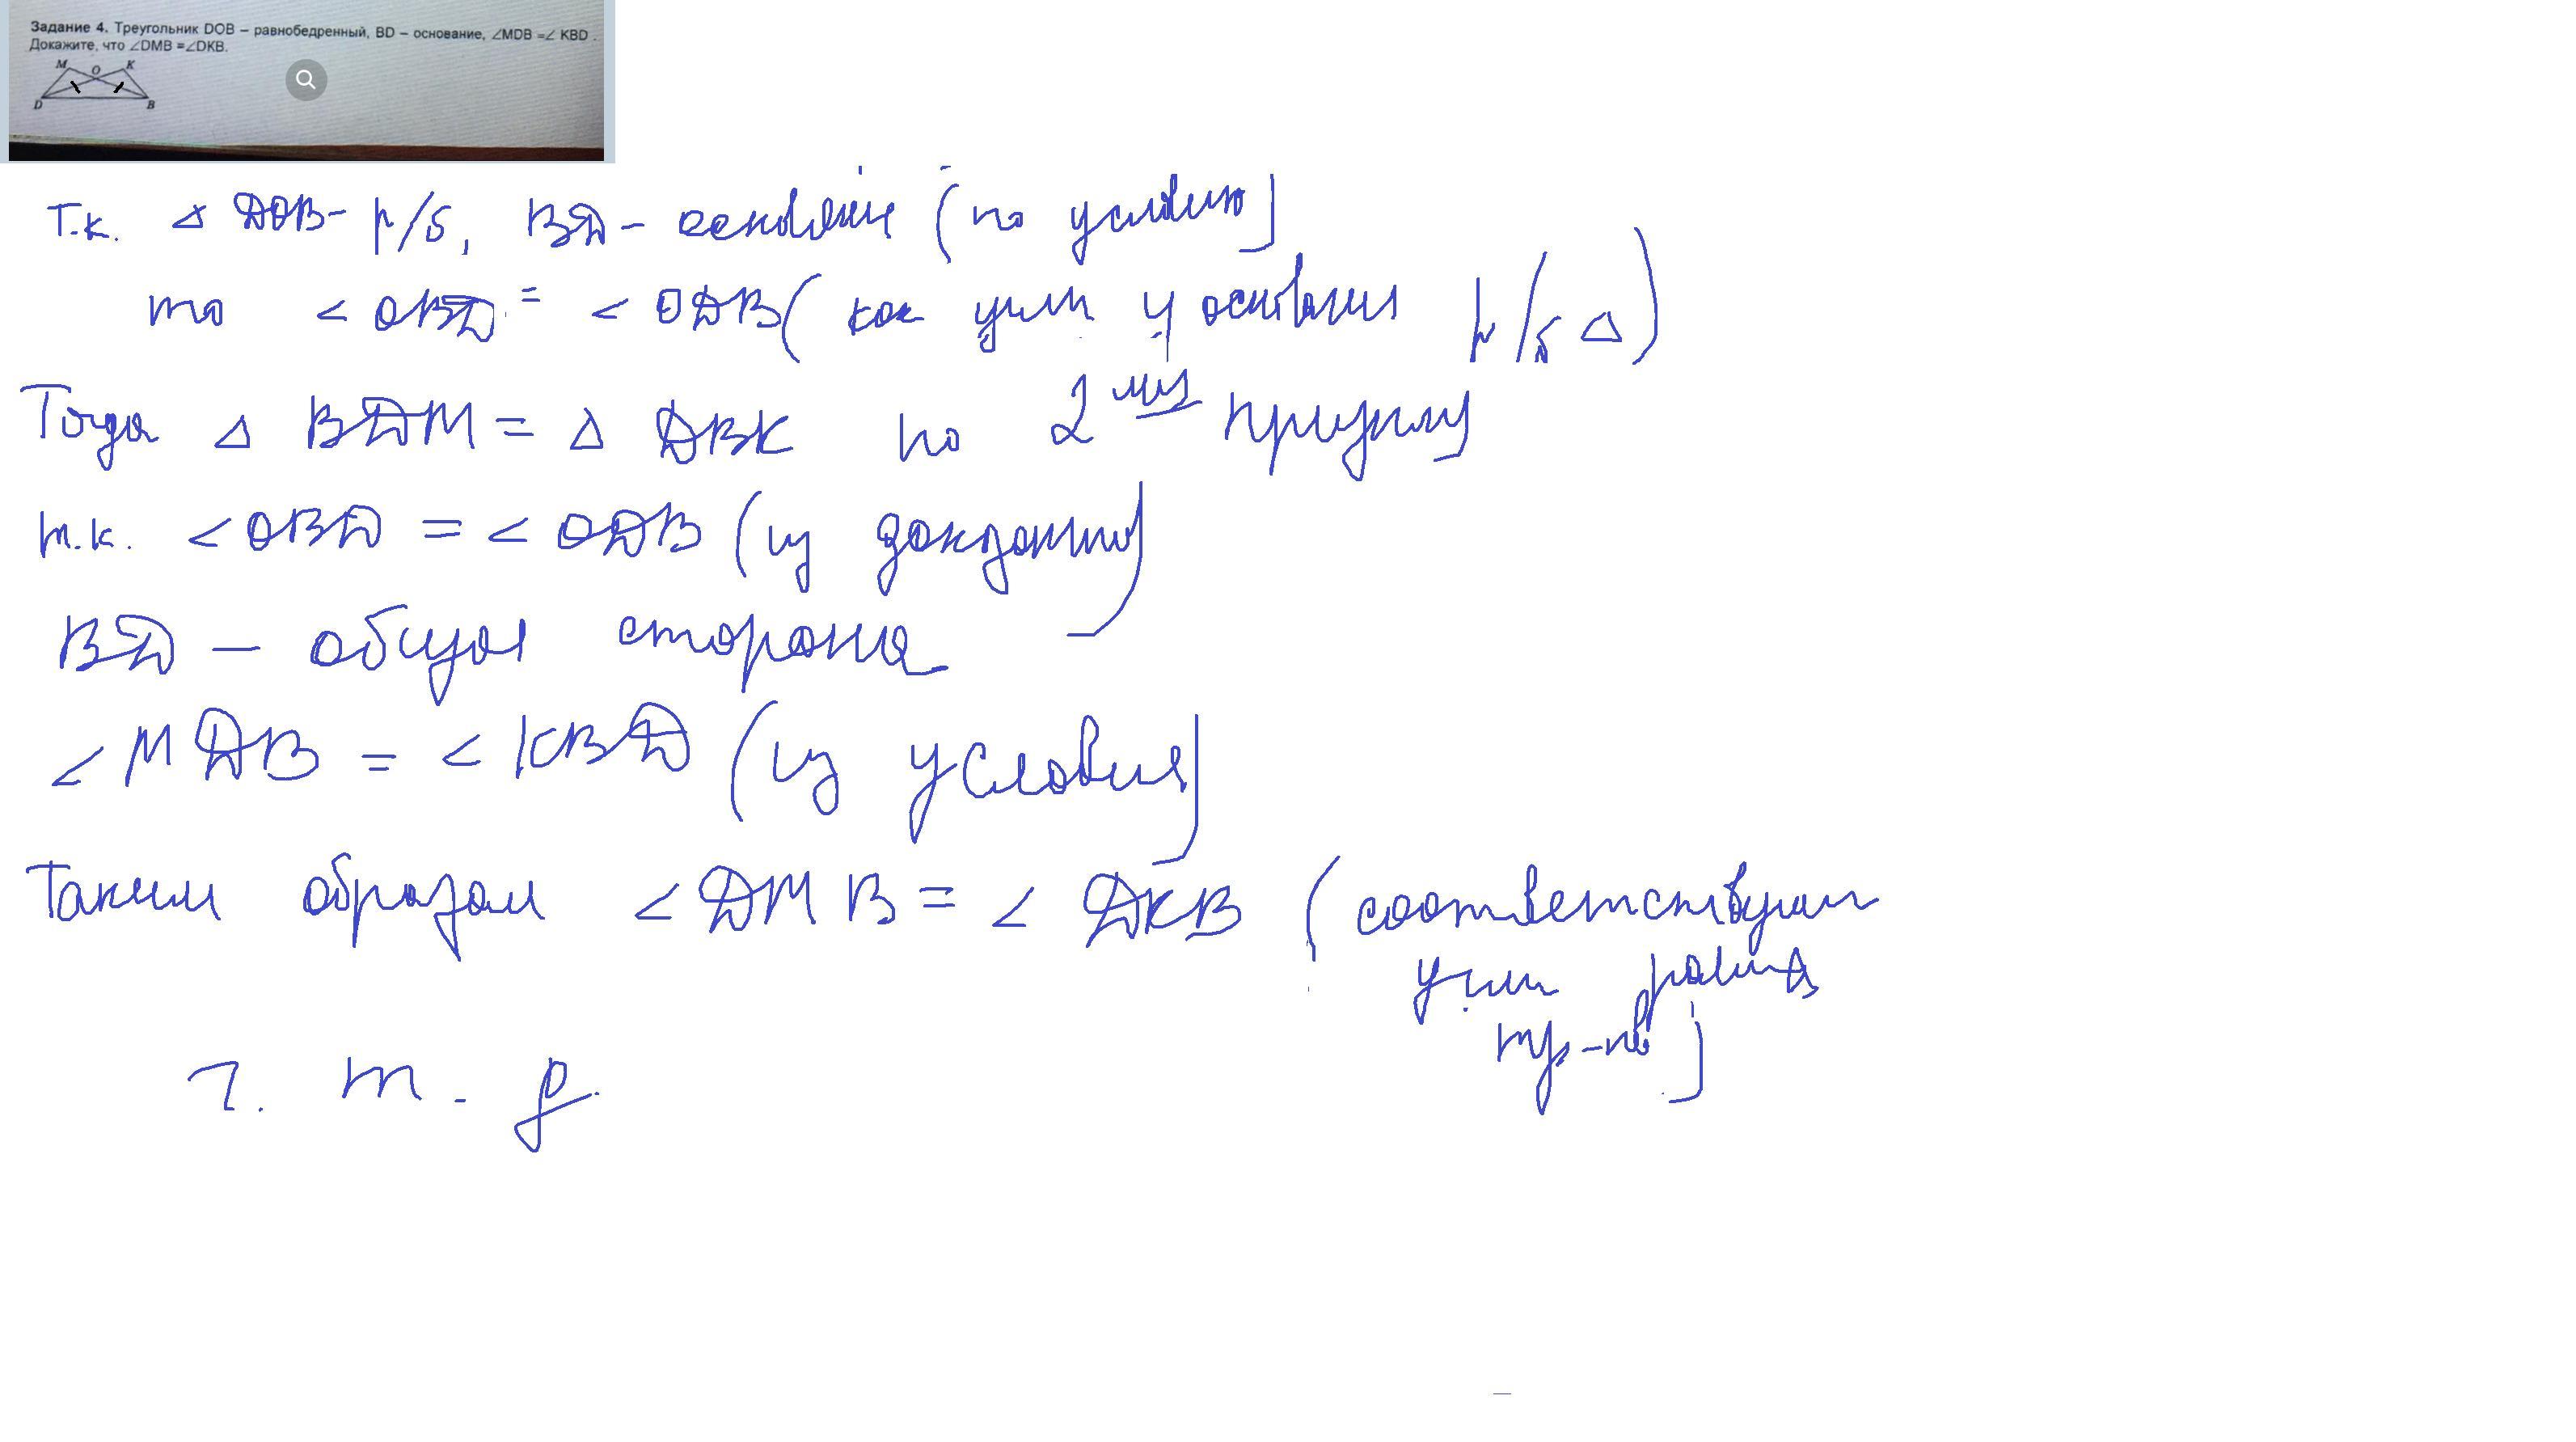 Задание 4. Треугольник DOB – равнобедренный, BD – основание, ∠MDB =∠ KBD .
Докажите, что ∠DMB =∠DKB.
M O K
D B
Т.к. △ DOB- р/б, BD - основание (по условию)
то ∠ OBD = ∠ ODB (как углы у основания р/б △)
Тогда △ BDM = △ DBK по 2 ому признаку
т.к. ∠OBD = ∠ ODB (из доказанного)
BD – общая сторона
∠ MDB = ∠ KBD (из условия)
Таким образом ∠ DMB = ∠ DKB (соответствующие
углы равных
тр-ов)
ч. т. д.